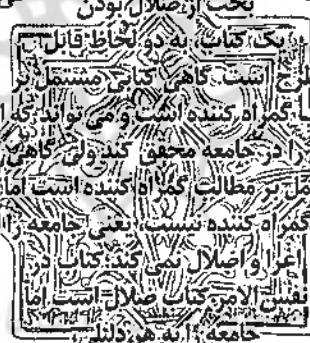 بحث از ضلال بودن
یک کتاب، به دو لحاظ قابل
طرح است، گاهی کتابی مشتمل بر
گمراه کننده است و می‌تواند که
را در جامعه محقق کند ولی گاهی
مل بر مطالب گمراه کننده است اما
گمراه کننده نیست، یعنی جامعه را
اغرا و اضلال نمی کند؛ کتاب در
نفس الامر کتاب ضلال است اما
جامعه را به هر دلیلی